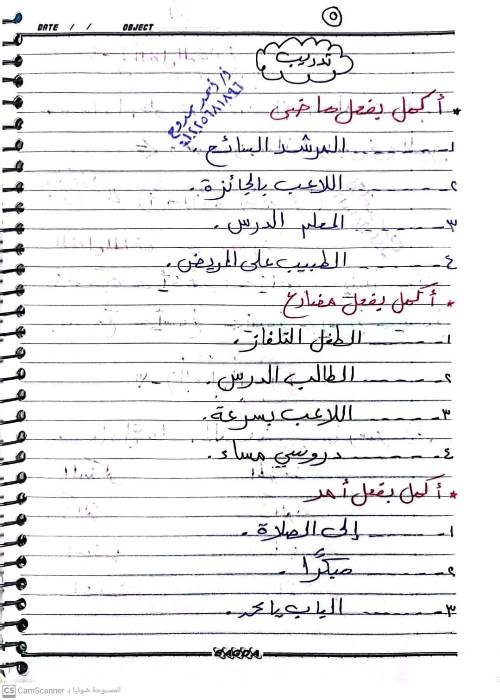 ٥
DATE / / OBJECT
تدريب
* أكمل بفعل ماضى
١- ...... المرشد السائح .
٢- ...... اللاعب بالجائزة .
٣- ...... المعلم الدرس .
٤- ...... الطبيب على المريض .
* أكمل بفعل مضارع
١- ...... الطفل التلفاز .
٢- ...... الطالب الدرس .
٣- ...... اللاعب بسرعة .
٤- ...... دروسي مساء .
* أكمل بفعل أمر
١- ...... إلى الصلاة .
٢- ...... مبكرًا .
٣- ...... الباب يا محمد .
CS CamScanner الممسوحة ضوئيا بـ